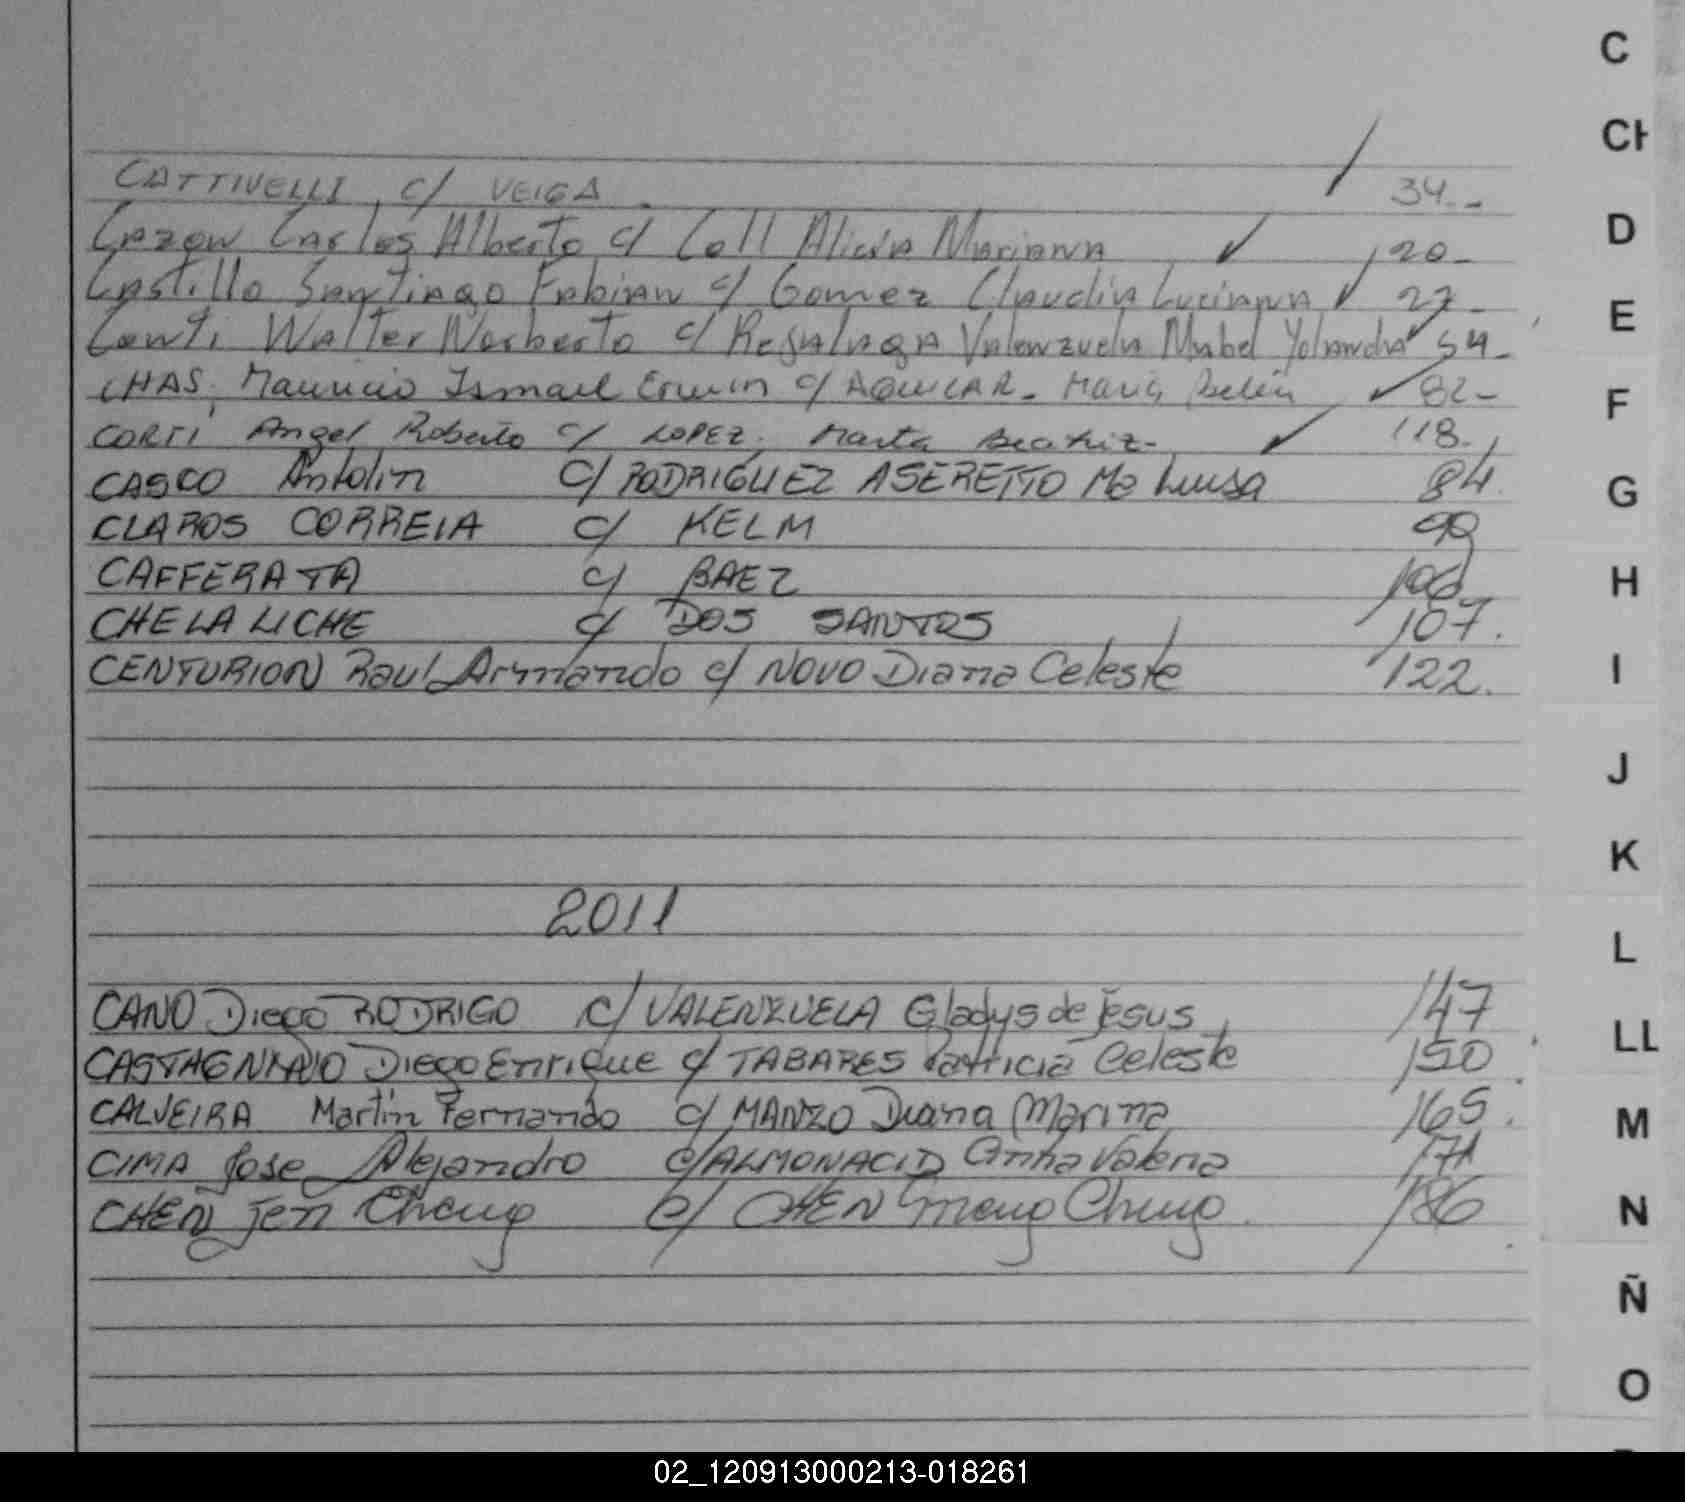 CATTIVELLI c/ VEIGA 34.-
Cazow Carlos Alberto c/ Coll Alicia Mariana 120-
Castillo Santiago Fabian c/ Gomez Claudia Luciana 27-
Conti Walter Norberto c/ Valenzuela Mabel Yolanda 54-
CHAS, Mauricio Ismael Erwin c/ AGUILAR. María Belén 82-
CORTI Angel Roberto c/ LOPEZ, Marta Beatriz- 118.
CASCO Antolin c/ RODRIGUEZ ASERETTO Ma Luisa 84.
CLAROS CORREIA c/ KELM 99
CAFFERATA c/ BAEZ 106
CHELALICHE c/ DOS SANTOS 107.
CENTURION Raul Armando c/ NOVO Diana Celeste 122.
2011
CANO Diego RODRIGO c/ VALENZUELA Gladys de Jesus 147
CASTAGNINO Diego Enrique c/ TABARES Patricia Celeste 150
CALVEIRA Martin Fernando c/ MANZO Diana Marina 165.
CIMA Jose Alejandro c/ ALMONACID Valeria 171
CHEN Jen Cheng c/ CHEN Meng Chung. 186
C
CH
D
E
F
G
H
I
J
K
L
LL
M
N
Ñ
O
02_120913000213-018261